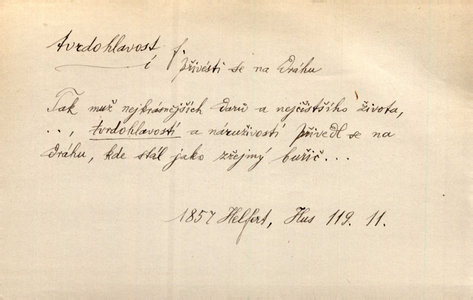 tvrdohlavost f.
i přivésti se na dráhu
Tak muž nejkrásnějších darů a nejčistšího života,
.., tvrdohlavostí a náruživostí přivedl se na
dráhu, kde stál jako zřejmý buřič...
1857 Helfert, Hus 119. 11.